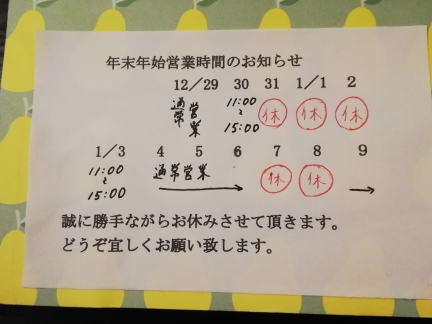 年末年始営業時間のお知らせ
12／29 30 31 1／1 2
通常営業 11:00 〜 15:00 休 休 休
1／3 4 5 6 7 8 9
11:00 〜 15:00 通常営業 → 休 休 →
誠に勝手ながらお休みさせて頂きます。
どうぞ宜しくお願い致します。